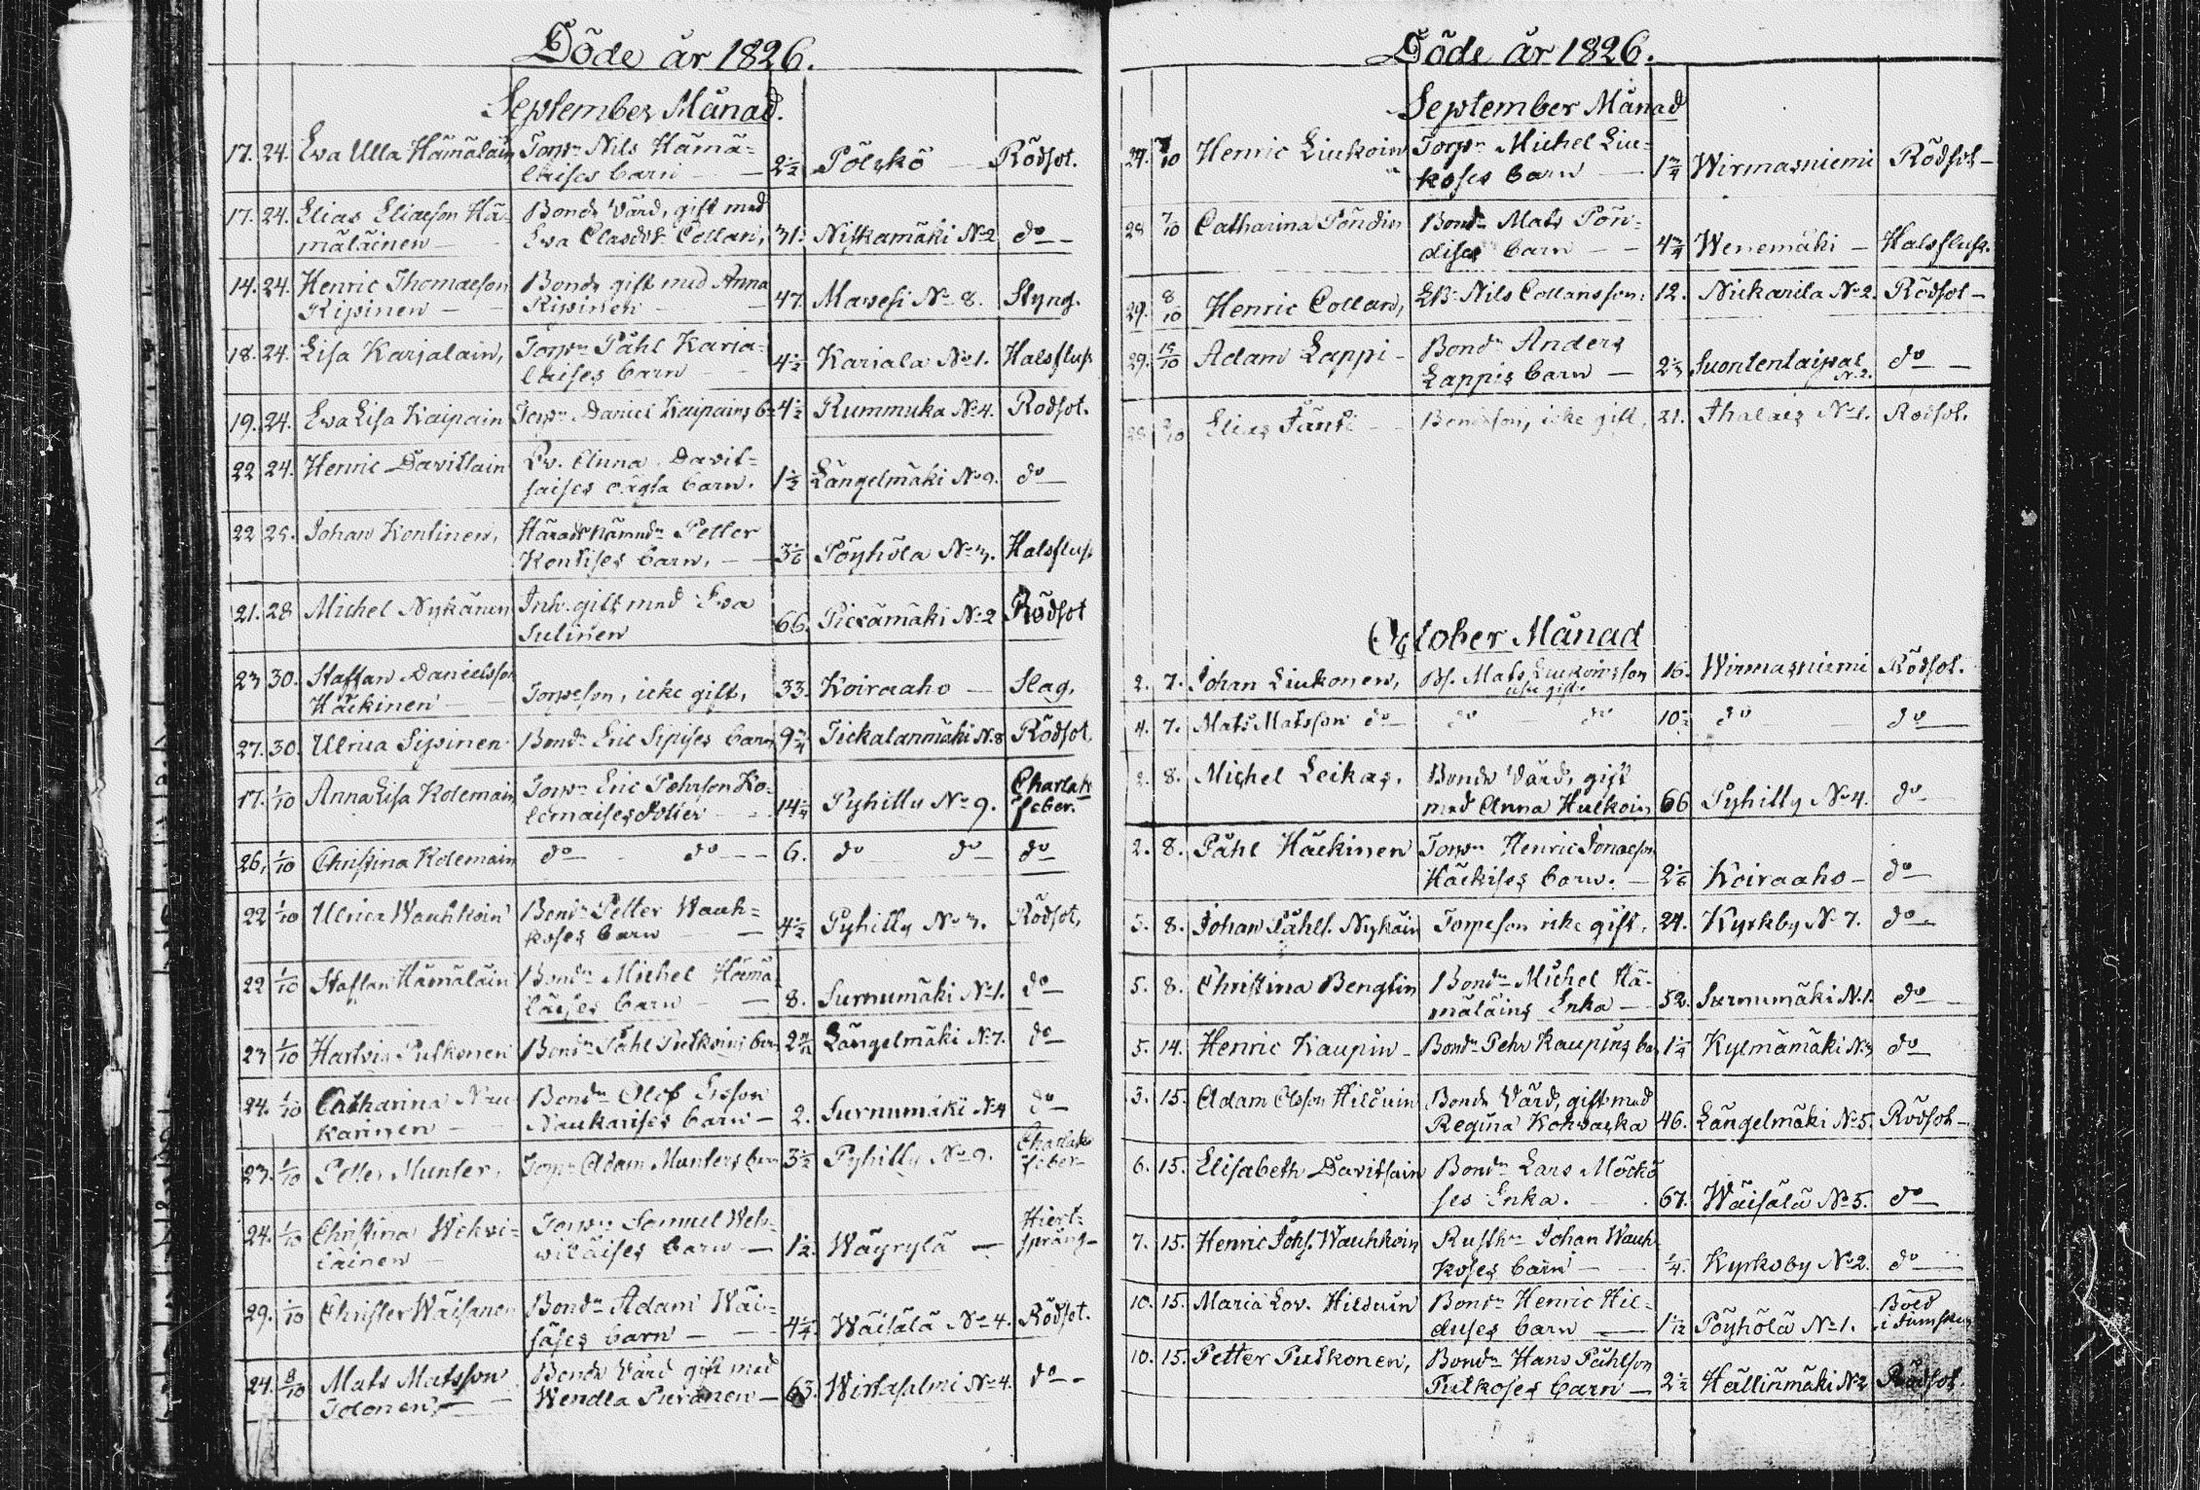 Döde år 1826.
September Månad.
17. 24. Ewa Ulla Hämäläin Torpn Nils Hämä=
läises barn 2 1/2 Pölskö Rödsot.
17. 24. Elias Eliaeson Hä- Bonde Värd, gift med
mäläinen Ewa Clasdotr Collan, 31. Niskamäki No 2 do
14. 24. Henric Thomaeson Bonde gift med Anna
Ripinen Ripinen 47. Mavesi No 8. Styng.
18. 24. Lisa Karjalain, Torpn Påhl Karja-
laises barn 4 1/2 Kariala No 1. Halsfluss
19. 24. Ewa Lisa Kaipain Torpn Daniel Kaipains bn 4 1/2 Rummuka No 4. Rodsot.
22 24. Henric Davitsain Lv. Anna Davit=
saises oägta barn. 1 1/2 Längelmäki No 9. do
22 25. Johan Kontinen, Häradsnämndn Petter
Kontises barn. 3 1/6 Pöyhölä No 3. Halsfluss
21. 28 Michel Nykänen Inh. gift med Ewa
Sutinen 66. Piesämäki No 2 Rödsot
23 30. Staffan Danielsson
Häckinen Torpeson, icke gift, 33. Koiraaho Slag.
27. 30. Ulrica Sipinen Bondn Eric Sipises barn 9 3/4 Tickalanmäki N. 8 Rödsot
17. 1/10 Anna Lisa Kolemain Torpn Eric Pehrson Ko- Charlak
lemaises dotter 14 1/4 Pyhitty No 9. feber.
26. 1/10 Christina Kolemain do do 6. do do do
22 1/10 Ulrica Wauhkoin Bondn Petter Wauh=
koses barn 4 1/2 Pyhitty No 3. Rödsot,
22 1/10 Staffan Hämäläin Bondn Michel Hämä
läises barn 8. Surnumäki No 1. do
23 1/10 Hartvig Putkonen Bondn Påhl Putkoins barn Längelmäki No 7. do
24. 1/10 Catharina Nau Bondn Olof
karinen Naukarises barn 2. Surnumäki No 4 do
23. 1/10 Petter Munter, Torpn Adam Munters barn 3 1/2 Pyhitty No 9. Charlak
feber
24. 1/10 Christina Wehvi= Torpn Samuel Weh- Hiert-
läinen wiläises barn 1/2. Wäyrylä språng
29. 1/10 Christer Wäisänen Bondn Adam Wäi=
säses barn 4 1/4. Wäisälä No 4. Rödsot.
24. 8/10 Mats Matsson Bonde Värd gift med
Tolonen, Wendla Puranen 63. Wirtasalmi No 4. do
Döde år 1826.
September Månad
27. 7/10 Henric Liukoin Torpn Michel Liu-
koses barn 1 3/4 Wirmasniemi Rödsot
28 7/10 Catharina Pöndin Bondn Mats Pön-
dises barn 4 3/4 Wenemäki Halsfluss.
29. 8/10 Henric Collan, Nils Collans son, 12. Nickarila No 2. Rödsot
29. 15/10 Adam Lappi Bondn Anders
Lappis barn Suontentaipal do
No 2.
28 Elias Bondeson, icke gift, 21. Thalais No 1. Rodsot.
October Månad
2. 7. Johan Liukonen, Bs. Mats Liukoinsson 16. Wirmasniemi Rödsot.
icke gift.
4. 7. Mats Matsson do do do 10 1/2 do do
2. 8. Michel Leikas, Bonde Värd, gift
med Anna Hulkoin 66 Pyhitty No 4. do
2. 8. Påhl Häckinen Torpn Henric Jonaeson
Häckises barn. 2 1/6 Koiraaho do
3. 8. Johan Påhls. Nykäin Torpeson icke gift, 24. Kyrkby No 7. do
5. 8. Christina Bengtin Bondn Michel Hä-
mäläins Enka 52. Surnumäki N. 1. do
5. 14. Henric Kaupin Bondn Pehr Kaupins bar 1 1/4 Kylmämäki No 3 do
3. 15. Adam Olsson Hilduin Bonde Värd, gift med
Regina Kohvacka 46. Längelmäki No 5. Rödsot
6. 15. Elisabeth Davitsain Bondn Lars Möckö
ses Enka. 67. Wäisälä No 5. do
7. 15. Henric Johs. Wauhkoin Rusthn Johan Wauh-
koses barn 1/4. Kyrkoby No 2. do
10. 15. Maria Lov. Hilduin Bondn Henric Hil- Böld
duses barn 1 1/12 Pöyhölä No 1. i
10. 15. Petter Putkonen, Bondn Hans Påhlson
Putkoses barn 2 1/2 Hällinmäki No 2 Rödsot.